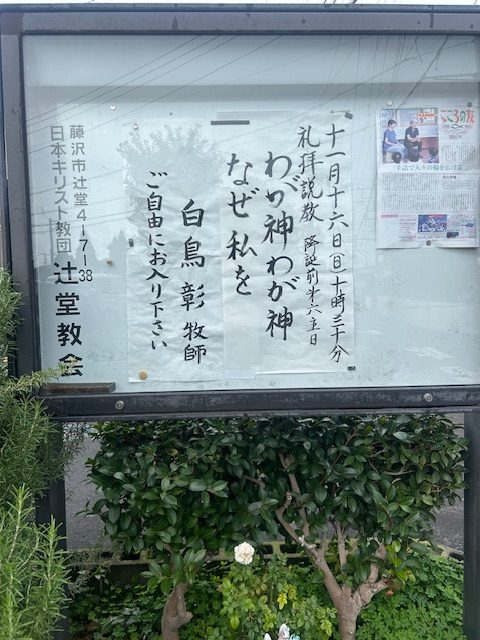 こころの友
手話で人々の輪を広げる
十一月十六日(日)十時三十分
礼拝説教 降誕前第六主日
わが神わが神
なぜ私を
白鳥 彰 牧師
ご自由にお入り下さい
藤沢市辻堂4-7-38
日本キリスト教団 辻堂教会